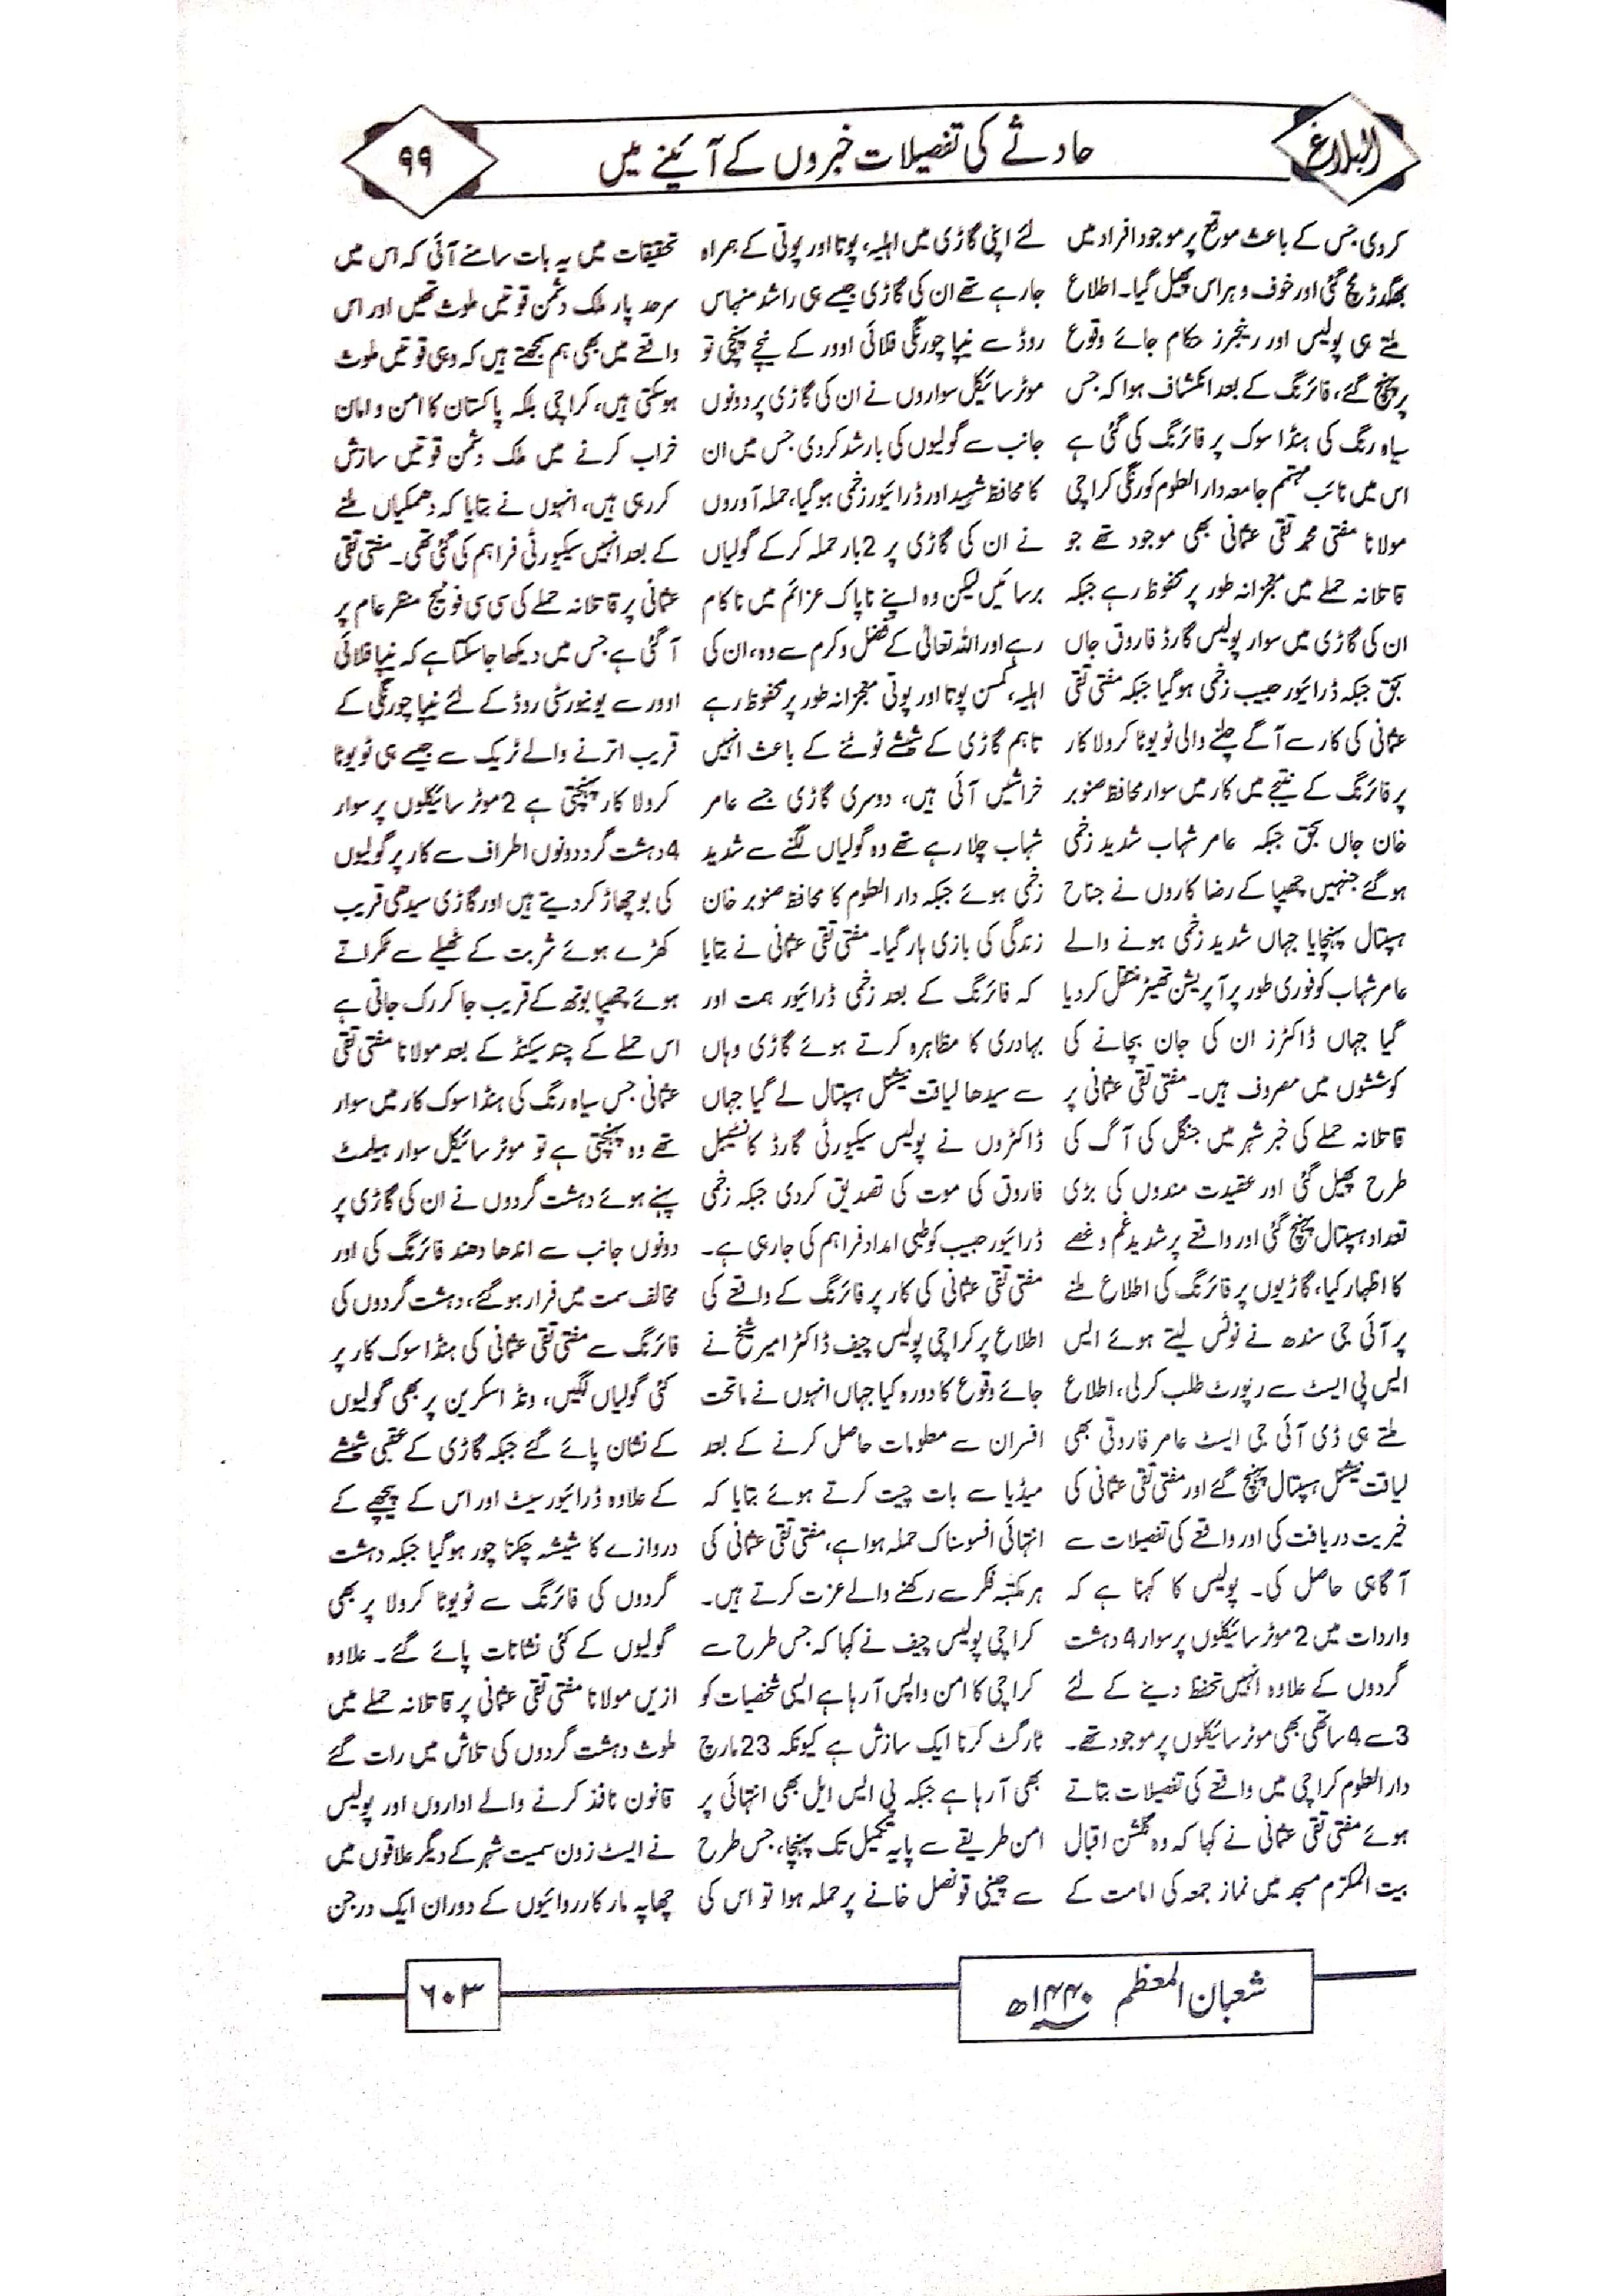 البلاغ
حادثے کی تفصیلات خبروں کے آئینے میں
۹۹
کردی جس کے باعث موقع پر موجود افراد میں
بھگدڑ مچ گئی اور خوف و ہراس پھیل گیا۔ اطلاع
ملتے ہی پولیس اور رینجرز حکام جائے وقوع
پر پہنچ گئے، فائرنگ کے بعد انکشاف ہوا کہ جس
سیاہ رنگ کی ہنڈا سوک پر فائرنگ کی گئی ہے
اس میں نائب مہتمم جامعہ دارالعلوم کورنگی کراچی
مولانا مفتی محمد تقی عثمانی بھی موجود تھے جو
قاتلانہ حملے میں معجزانہ طور پر محفوظ رہے جبکہ
ان کی گاڑی میں سوار پولیس گارڈ فاروق جاں
بحق جبکہ ڈرائیور حبیب زخمی ہوگیا جبکہ مفتی تقی
عثمانی کی کار سے آگے چلنے والی ٹویوٹا کرولا کار
پر فائرنگ کے نتیجے میں کار میں سوار محافظ صنوبر
خان جاں بحق جبکہ عامر شہاب شدید زخمی
ہوگئے جنہیں چھیپا کے رضا کاروں نے جناح
ہسپتال پہنچایا جہاں شدید زخمی ہونے والے
عامر شہاب کو فوری طور پر آپریشن تھیٹر منتقل کردیا
گیا جہاں ڈاکٹرز ان کی جان بچانے کی
کوششوں میں مصروف ہیں۔ مفتی تقی عثمانی پر
قاتلانہ حملے کی خبر شہر میں جنگل کی آگ کی
طرح پھیل گئی اور عقیدت مندوں کی بڑی
تعداد ہسپتال پہنچ گئی اور واقعے پر شدید غم و غصے
کا اظہار کیا، گاڑیوں پر فائرنگ کی اطلاع ملنے
پر آئی جی سندھ نے نوٹس لیتے ہوئے ایس
ایس پی ایسٹ سے رپورٹ طلب کرلی، اطلاع
ملتے ہی ڈی آئی جی ایسٹ عامر فاروقی بھی
لیاقت نیشنل ہسپتال پہنچ گئے اور مفتی تقی عثمانی کی
خیریت دریافت کی اور واقعے کی تفصیلات سے
آگاہی حاصل کی۔ پولیس کا کہنا ہے کہ
واردات میں 2 موٹر سائیکلوں پر سوار 4 دہشت
گردوں کے علاوہ انہیں تحفظ دینے کے لئے
3 سے 4 ساتھی بھی موٹر سائیکلوں پر موجود تھے۔
دارالعلوم کراچی میں واقعے کی تفصیلات بتاتے
ہوئے مفتی تقی عثمانی نے کہا کہ وہ گلشن اقبال
بیت المکرّم مسجد میں نماز جمعہ کی امامت کے
لئے اپنی گاڑی میں اہلیہ، پوتا اور پوتی کے ہمراہ
جارہے تھے ان کی گاڑی جیسے ہی راشد منہاس
روڈ سے نیپا چورنگی فلائی اوور کے نیچے پہنچی تو
موٹر سائیکل سواروں نے ان کی گاڑی پر دونوں
جانب سے گولیوں کی بارشد کردی جس میں ان
کا محافظ شہید اور ڈرائیور زخمی ہوگیا، حملہ آوروں
نے ان کی گاڑی پر 2 بار حملہ کرکے گولیاں
برسائیں لیکن وہ اپنے ناپاک عزائم میں ناکام
رہے اور اللہ تعالیٰ کے فضل و کرم سے وہ، ان کی
اہلیہ، کمسن پوتا اور پوتی معجزانہ طور پر محفوظ رہے
تاہم گاڑی کے شیشے ٹوٹنے کے باعث انہیں
خراشیں آئی ہیں، دوسری گاڑی جسے عامر
شہاب چلا رہے تھے وہ گولیاں لگنے سے شدید
زخمی ہوئے جبکہ دارالعلوم کا محافظ صنوبر خان
زندگی کی بازی ہار گیا۔ مفتی تقی عثمانی نے بتایا
کہ فائرنگ کے بعد زخمی ڈرائیور ہمت اور
بہادری کا مظاہرہ کرتے ہوئے گاڑی وہاں
سے سیدھا لیاقت نیشنل ہسپتال لے گیا جہاں
ڈاکٹروں نے پولیس سیکیورٹی گارڈ کانسٹیبل
فاروق کی موت کی تصدیق کردی جبکہ زخمی
ڈرائیور حبیب کو طبی امداد فراہم کی جارہی ہے۔
مفتی تقی عثمانی کی کار پر فائرنگ کے واقعے کی
اطلاع پر کراچی پولیس چیف ڈاکٹر امیر شیخ نے
جائے وقوع کا دورہ کیا جہاں انہوں نے ماتحت
افسران سے معلومات حاصل کرنے کے بعد
میڈیا سے بات چیت کرتے ہوئے بتایا کہ
انتہائی افسوسناک حملہ ہوا ہے، مفتی تقی عثمانی کی
ہر مکتبہ فکر سے رکھنے والے عزت کرتے ہیں۔
کراچی پولیس چیف نے کہا کہ جس طرح سے
کراچی کا امن واپس آرہا ہے ایسی شخصیات کو
ٹارگٹ کرنا ایک سازش ہے کیونکہ 23 مارچ
بھی آرہا ہے جبکہ پی ایس ایل بھی انتہائی پر
امن طریقے سے پایہ تکمیل تک پہنچا، جس طرح
سے چینی قونصل خانے پر حملہ ہوا تو اس کی
تحقیقات میں یہ بات سامنے آئی کہ اس میں
سرحد پار ملک دشمن قوتیں ملوث تھیں اور اس
واقعے میں بھی ہم سمجھتے ہیں کہ وہی قوتیں ملوث
ہوسکتی ہیں، کراچی بلکہ پاکستان کا امن و امان
خراب کرنے میں ملک دشمن قوتیں سازش
کررہی ہیں، انہوں نے بتایا کہ دھمکیاں ملنے
کے بعد انہیں سیکیورٹی فراہم کی گئی تھی۔ مفتی تقی
عثمانی پر قاتلانہ حملے کی سی سی فوٹیج منظر عام پر
آگئی ہے جس میں دیکھا جاسکتا ہے کہ نیپا فلائی
اوور سے یونیورسٹی روڈ کے لئے نیپا چورنگی کے
قریب اترنے والے ٹریک سے جیسے ہی ٹویوٹا
کرولا کار پہنچتی ہے 2 موٹر سائیکلوں پر سوار
4 دہشت گرد دونوں اطراف سے کار پر گولیوں
کی بوچھاڑ کردیتے ہیں اور گاڑی سیدھی قریب
کھڑے ہوئے شربت کے ٹھیلے سے ٹکراتے
ہوئے چھیپا بوتھ کے قریب جاکر رک جاتی ہے
اس حملے کے چند سیکنڈ کے بعد مولانا مفتی تقی
عثمانی جس سیاہ رنگ کی ہنڈا سوک کار میں سوار
تھے وہ پہنچتی ہے تو موٹر سائیکل سوار ہیلمٹ
پہنے ہوئے دہشت گردوں نے ان کی گاڑی پر
دونوں جانب سے اندھا دھند فائرنگ کی اور
مخالف سمت میں فرار ہوگئے، دہشت گردوں کی
فائرنگ سے مفتی تقی عثمانی کی ہنڈا سوک کار پر
کئی گولیاں لگیں، ونڈ اسکرین پر بھی گولیوں
کے نشان پائے گئے جبکہ گاڑی کے عقبی شیشے
کے علاوہ ڈرائیور سیٹ اور اس کے پیچھے کے
دروازے کا شیشہ چکنا چور ہوگیا جبکہ دہشت
گردوں کی فائرنگ سے ٹویوٹا کرولا پر بھی
گولیوں کے کئی نشانات پائے گئے۔ علاوہ
ازیں مولانا مفتی تقی عثمانی پر قاتلانہ حملے میں
ملوث دہشت گردوں کی تلاش میں رات گئے
قانون نافذ کرنے والے اداروں اور پولیس
نے ایسٹ زون سمیت شہر کے دیگر علاقوں میں
چھاپہ مار کارروائیوں کے دوران ایک درجن
شعبان المعظم ۱۴۴۰ھ
۶۰۳